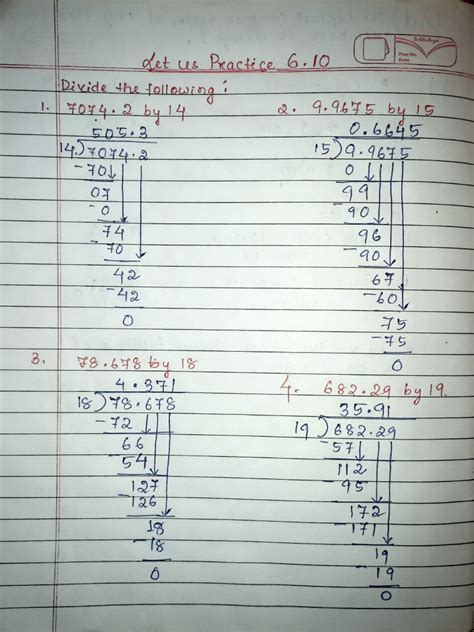 Let us Practice 6.10
Divide the following :
1. 7074.2 by 14
505.3
14)7074.2
-70
07
-0
74
-70
42
-42
0
2. 9.9675 by 15
0.6645
15)9.9675
0
99
-90
96
-90
67
-60
75
-75
0
3. 78.678 by 18
4.371
18)78.678
-72
66
-54
127
-126
18
-18
0
4. 682.29 by 19.
35.91
19)682.29
-57
112
-95
172
-171
19
-19
0